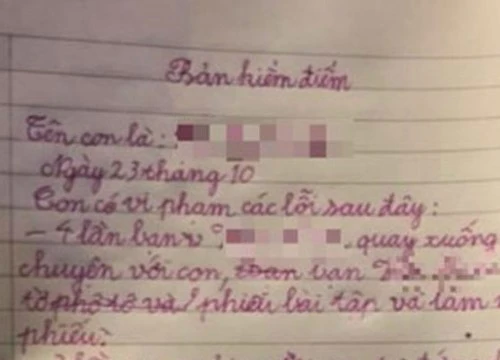 Bản kiểm điểm
Tên con là:
Ngày 23 tháng 10
Con có vi phạm các lỗi sau đây:
- 4 lần bạn quay xuống
chuyện với con, bạn
phiếu bài tập và làm
phiếu.